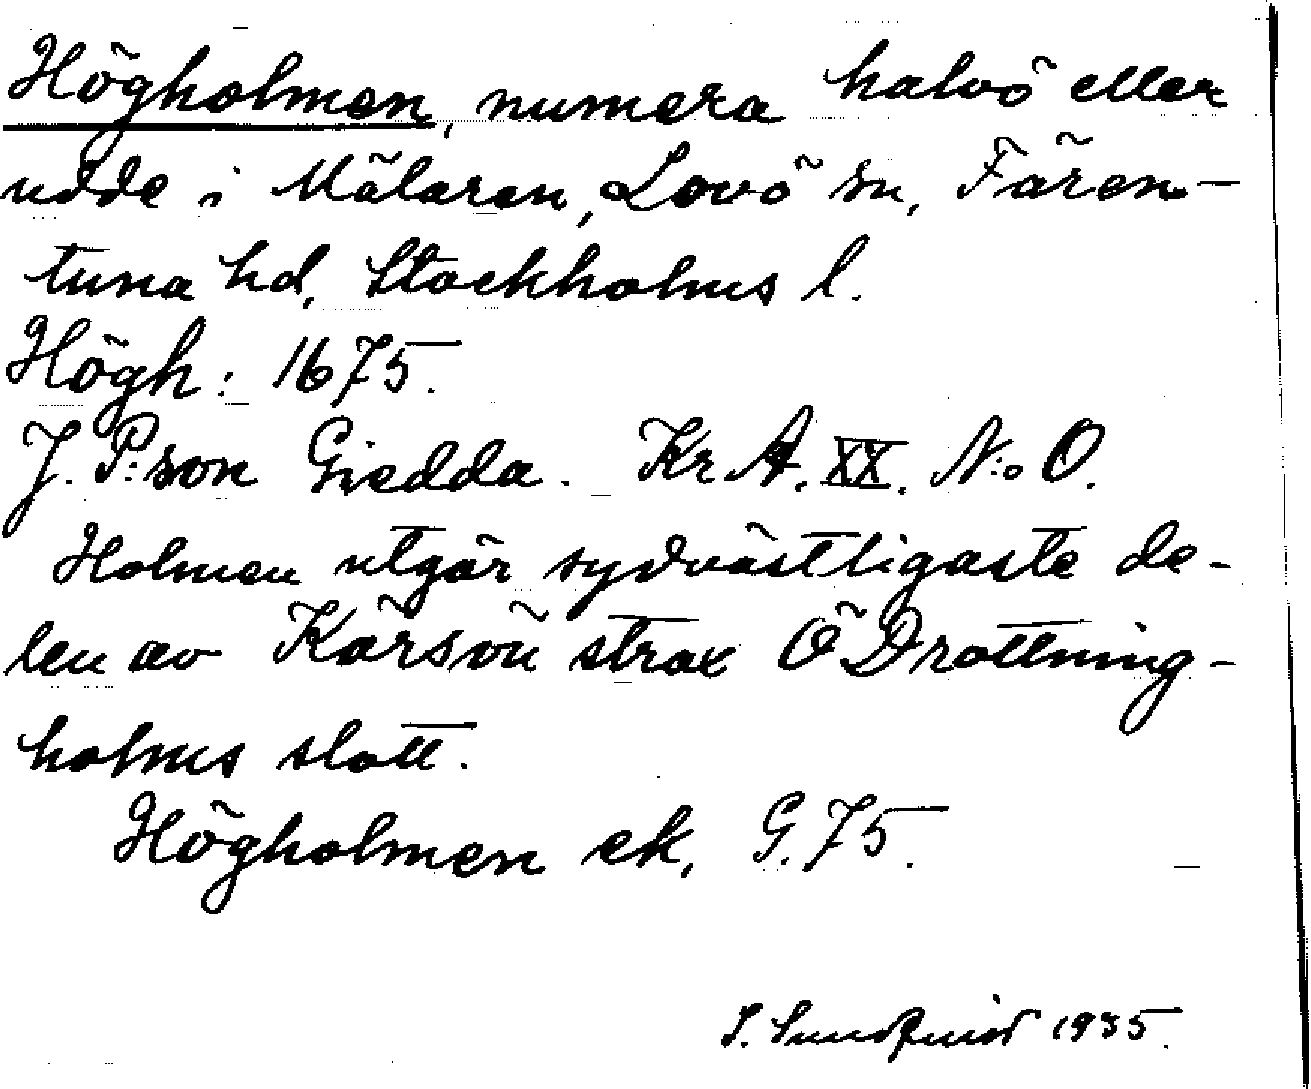 Högholmen, numera halvö eller
udde i Mälaren, Lovö sn, Fären-
tuna hd, Stockholms l.
Högh: 1675.
J. P:son Giedda. KrA. XX. N:o O.
Holmen utgör sydvästligaste de-
len av Kärsön strax Ö Drottning-
holms slott.
Högholmen ek, G. 75.
S. Sundquist 1935.